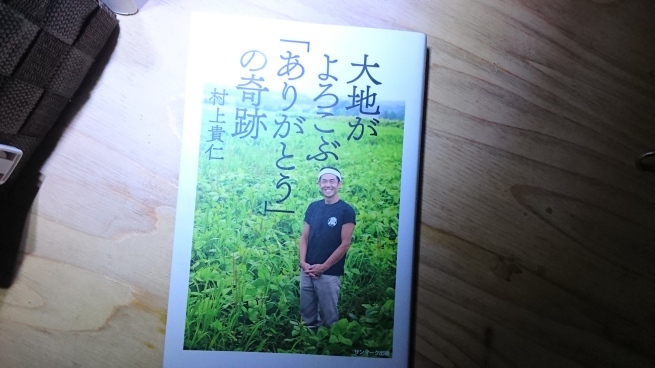 大地が
よろこぶ
「ありがとう」
の奇跡
村上貴仁
サンマーク出版